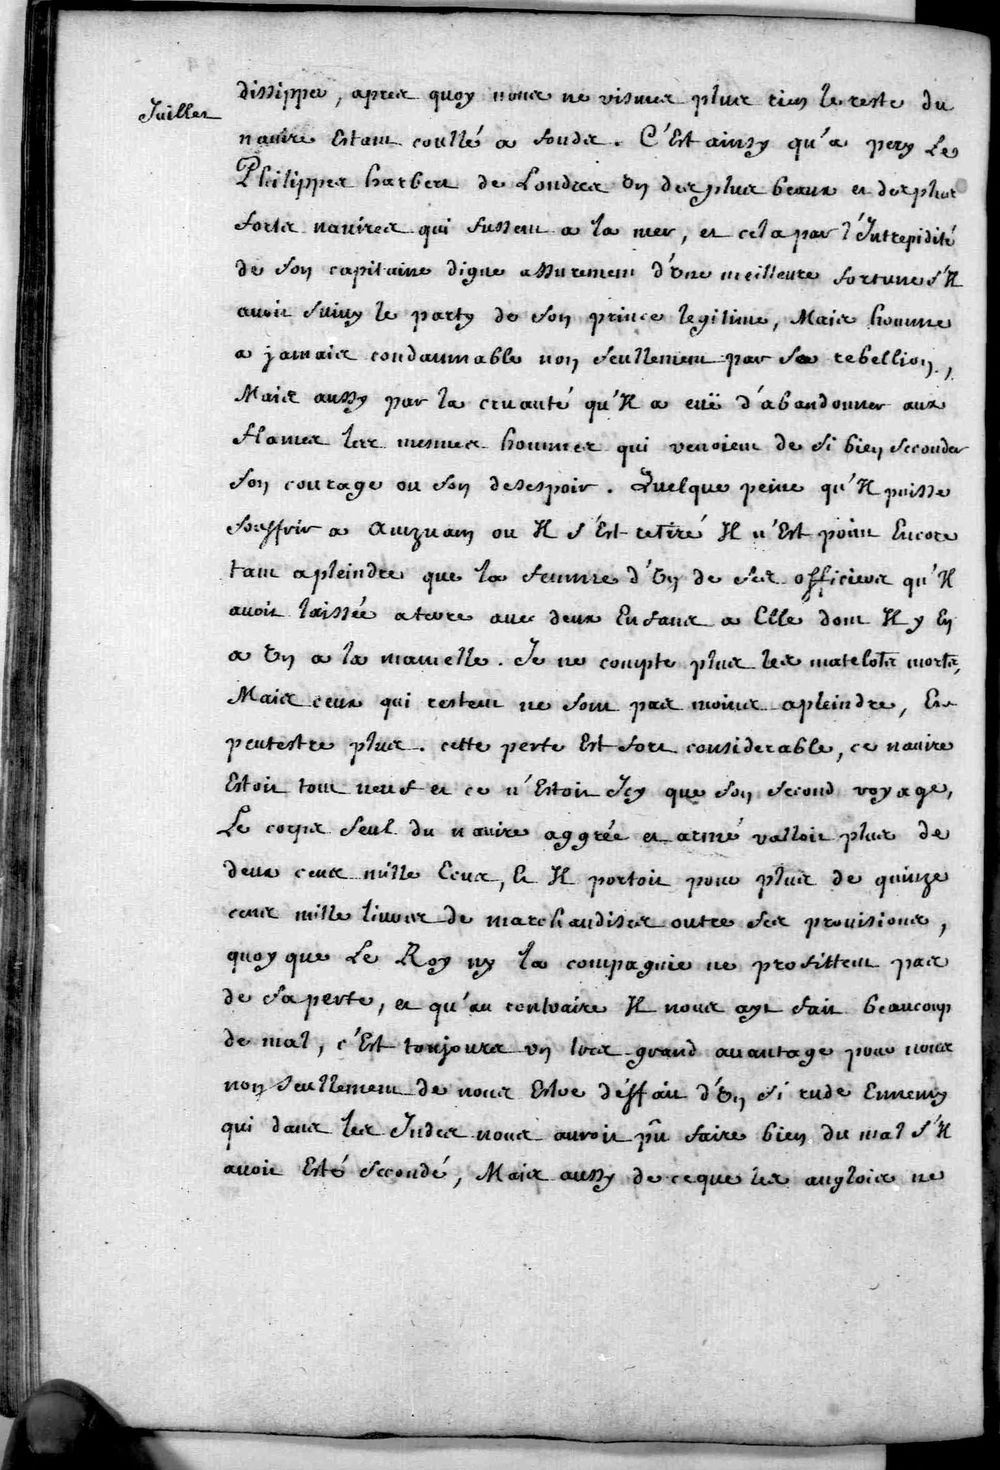 Juillet
dissipper, apres quoy nous ne vismes plus rien le reste du
navire Estant coullé a fonds. C'Est ainsy qu'a pery Le
Philippes harbert de Londres un des plus beaux et des plus
forts navires qui fussent a la mer, et cela par l'Intrepidité
de son capitaine digne assurement d'une meilleure fortune s'Il
avoit suivy le party de son prince legitime, Mais homme
a jamais condamnable non seullement par sa rebellion,
Mais aussy par la cruauté qu'Il a euë d'abandonner aux
flames les mesmes hommes qui venoient de si bien seconder
son courage ou son desespoir. Quelque peine qu'Il puisse
souffrir a Amzuam ou Il s'Est retiré Il n'Est point Encore
tant apleindre que la femme d'un de ses officiers qu'Il
avoit laissée aterre avec deux Enfans a Elle dont Il y En
a un a la mamelle. Je ne compte plus les matelots morts,
Mais ceux qui restent ne sont pas moins apleindre, Et
peutestre plus. cette perte Est fort considerable, ce navire
Estoit tout neuf et ce n'Estoit Icy que son second voyage,
Le corps seul du navire aggrée et armé valloit plus de
deux cens mille Ecus, Et Il portoit pour plus de quinze
cens mille livres de marchandises outre ses provisions,
quoy que Le Roy ny la compagnie ne profittent pas
de sa perte, et qu'au contraire Il nous ayt fait beaucoup
de mal, c'Est toujours un tres grand avantage pour nous
non seullement de nous Estre déffait d'un si rude Ennemy
qui dans les Indes nous auroit pû faire bien du mal s'Il
avoit Esté secondé, Mais aussy de ceque les anglois ne